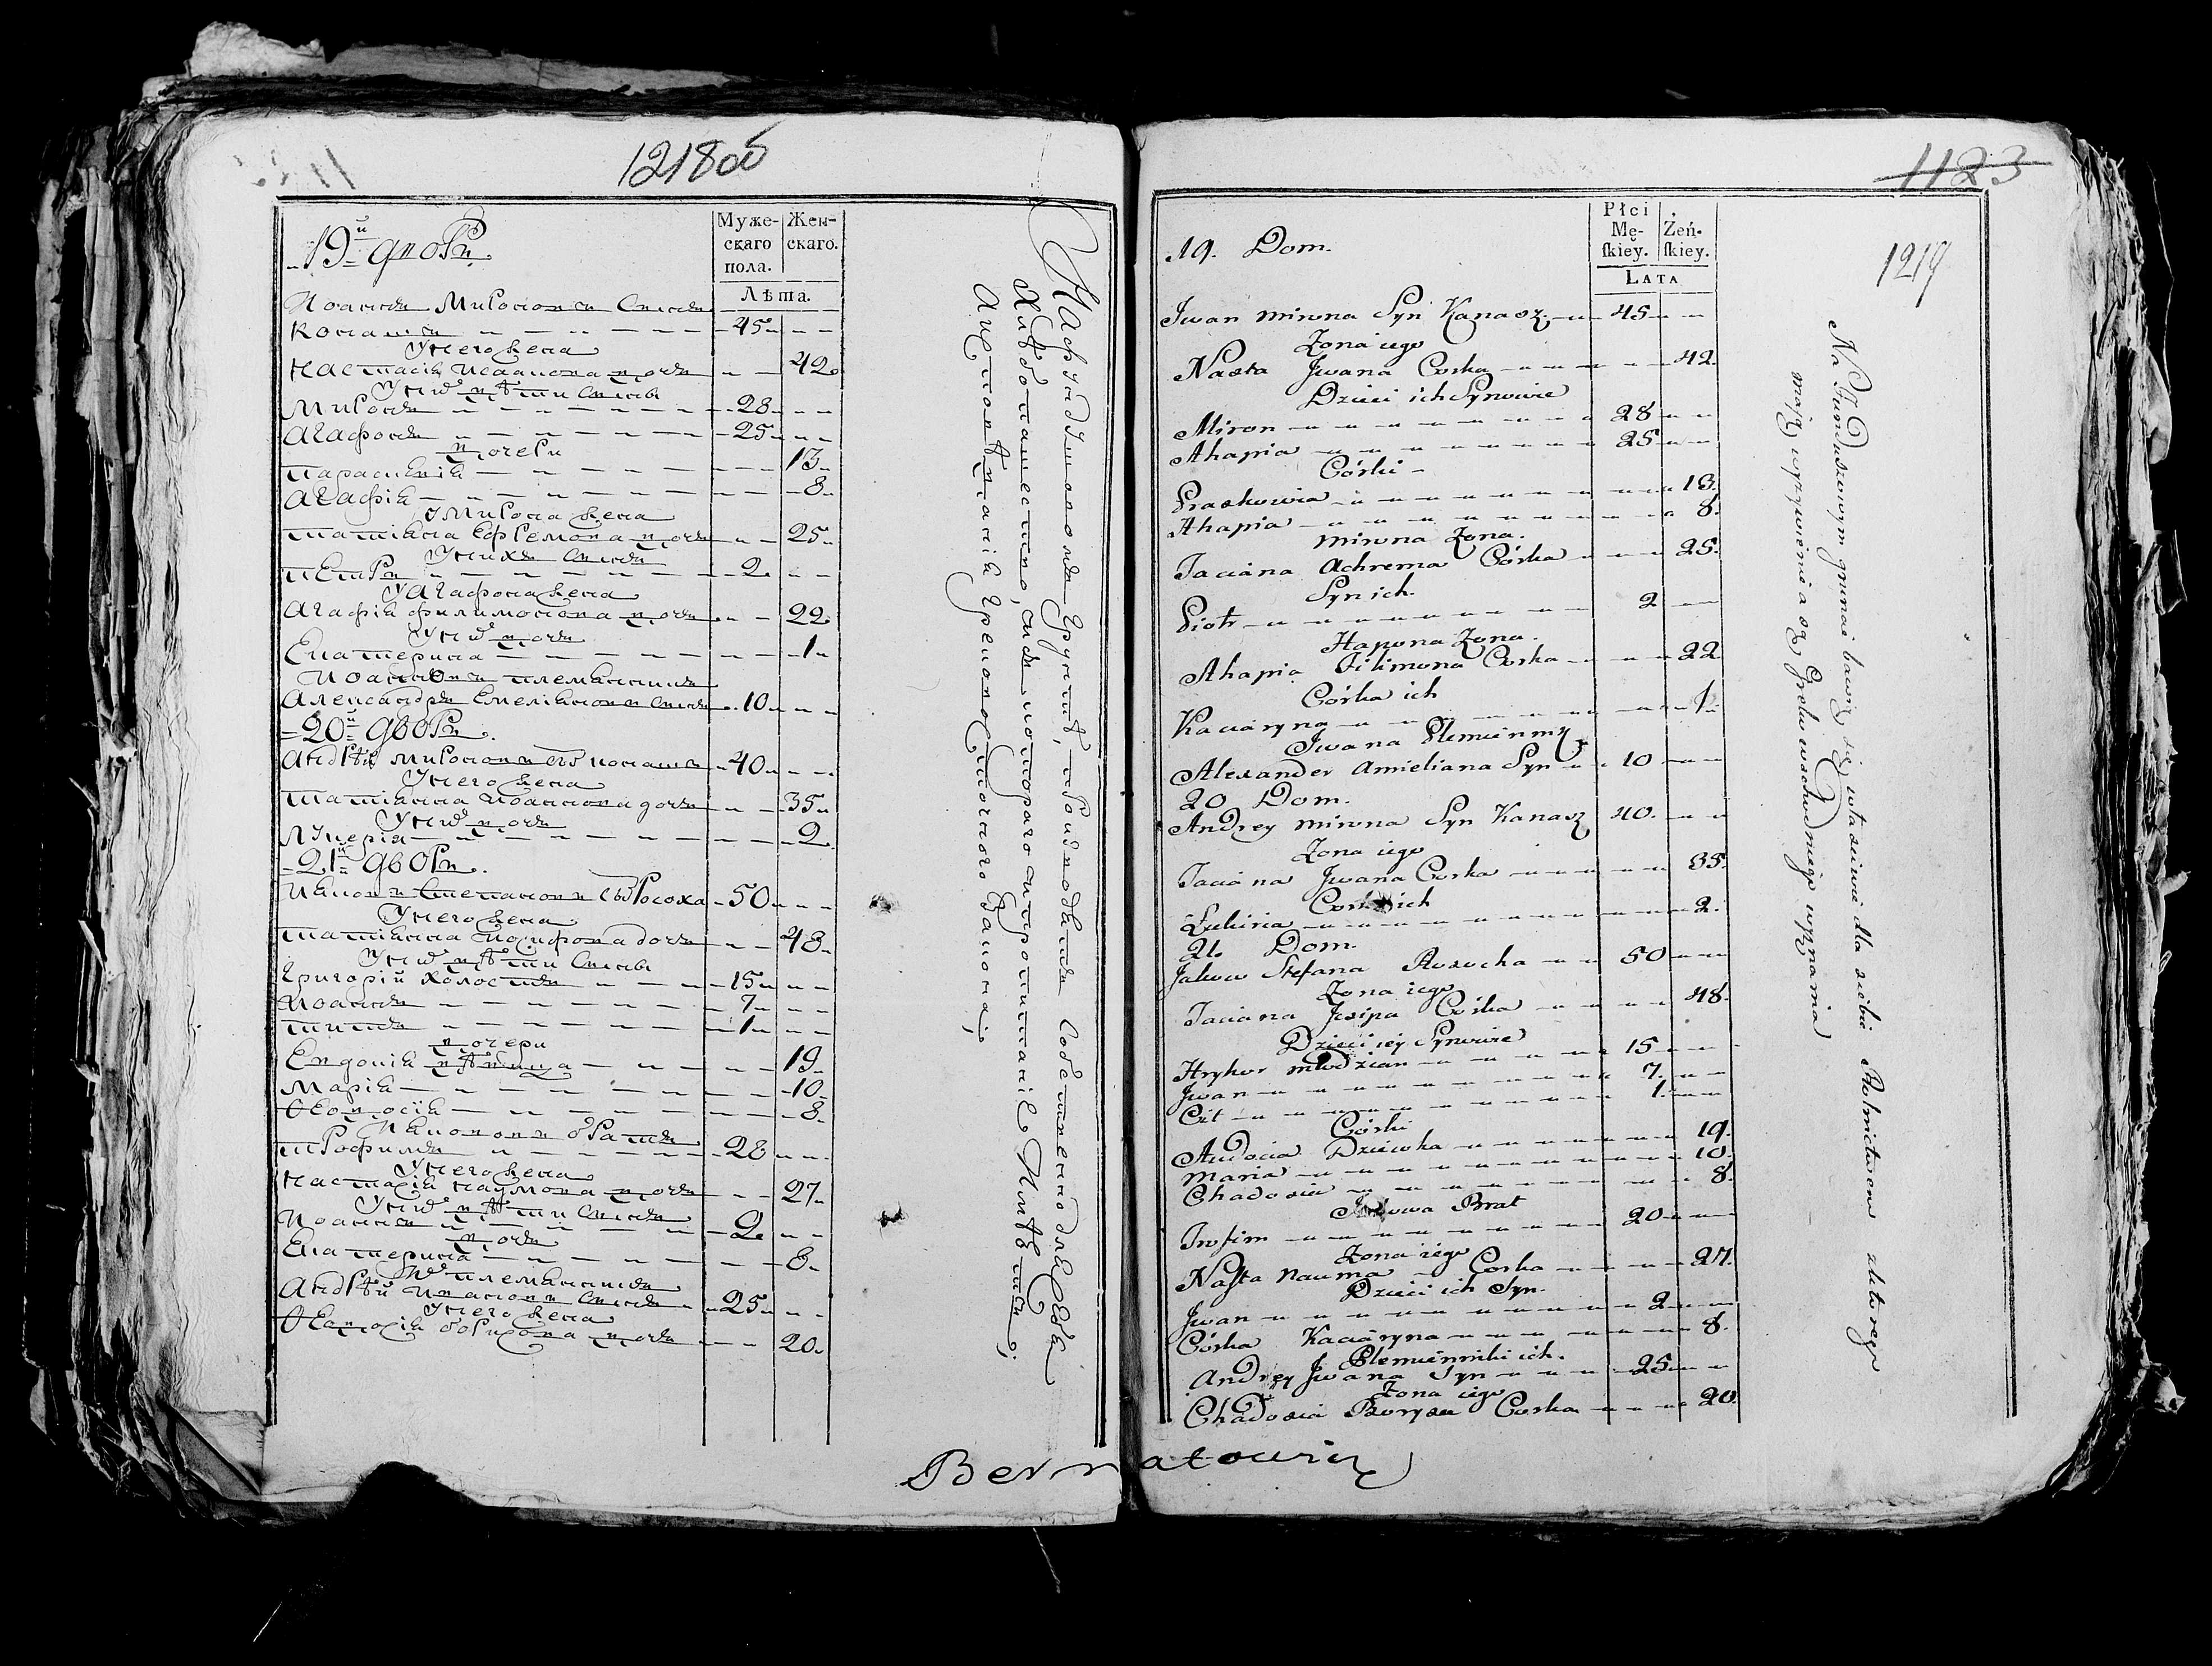 1218об
19й дворъ
Муже-
скаго
пола.
Жен-
скаго.
Лѣта.
Иоаннъ Мироновъ Сынъ
Конашъ 45
У него жена
Настасия Иванова дочь 42
У них дѣти Сыны
Миронъ 28
Агафонъ 25
дочери
Параскевія 13
Агафія 8
У Мирона жена
татіяна Ефремова дочь 25
У них Сынъ
петръ 2
У Агафона жена
Агафія филимонова дочь 22
У них дочь
Екатерина 1
Иоанновъ племянникъ
Александръ Емеліяновъ Сынъ 10
20й дворъ
Андрѣй Мироновъ Сынъ Конашъ 40
У него жена
татіянна Иоаннова дочь 35
У них дочь
Лукерія 2
21й дворъ
Яковъ Степановъ Съ Росоха 50
У него жена
татіянна Иосифова дочь 48
У них дѣти Сыны
Григорій холостъ 15
Иоаннъ 7
титъ 1
дочери
Евдокія дѣвица 19
Марія 10
Ѳеодосія 8
Яковов братъ
трофимъ 28
У него жена
Настасія Наумова дочь 27
У них дѣти Сынъ
Иоаннъ 2
дочь
Екатерина 8
их племянникъ
Андрѣй Ивановъ Сынъ 25
У него жена
Ѳеодосія борисова дочь 20
1123
1219
19. Dom.
Płci
Mę-
ſkiey.
Żeń-
ſkiey.
LATA
Jwan mirona Syn Kanasz 45
Zona iego
Nasta Jwana Corka 42
Dzieci ich Synowie
Miron 28
Ahapia 25
Córki
Praskowia 13
Ahapia 8
mirona Zona.
Taciana Achrema Córka 25
Syn ich.
Piotr 2
Hapona Zona.
Ahapia Filimona Corka 22
Córka ich
Kaciaryna 1
Jwana Plemiennik
Alexander Amieliana Syn 10
20 Dom.
Andrey mirona Syn Kanasz 40
Zona iego
Taciana Jwana Corka 35
Corka ich
Lukiria 2
21. Dom.
Jakow Stefana Rosocha 50
Zona iego
Taciana Josipa Córka 48
Dzieci iey Synowie
Hryhor młodzian 15
Jwan 7
Cit 1
Córki
Audocia Dziewka 19
Maria 10
Chadosia 8
Jakowa Brat
Trofim 20
Zona iego
Naſta Nauma Corka 27
Dzieci ich Syn.
Jwan 2
Córka Kaciaryna 8
Plemienniki ich.
Andrey Jwana Syn 25
Zona iego
Chadosia Borysa Corka 20
Na Funduszowym gruncie bawią się właściwie dla siebie Rolnictwem z którego
mają wyżywienie a są Greko wschodniego wyznania
Bernatowicz